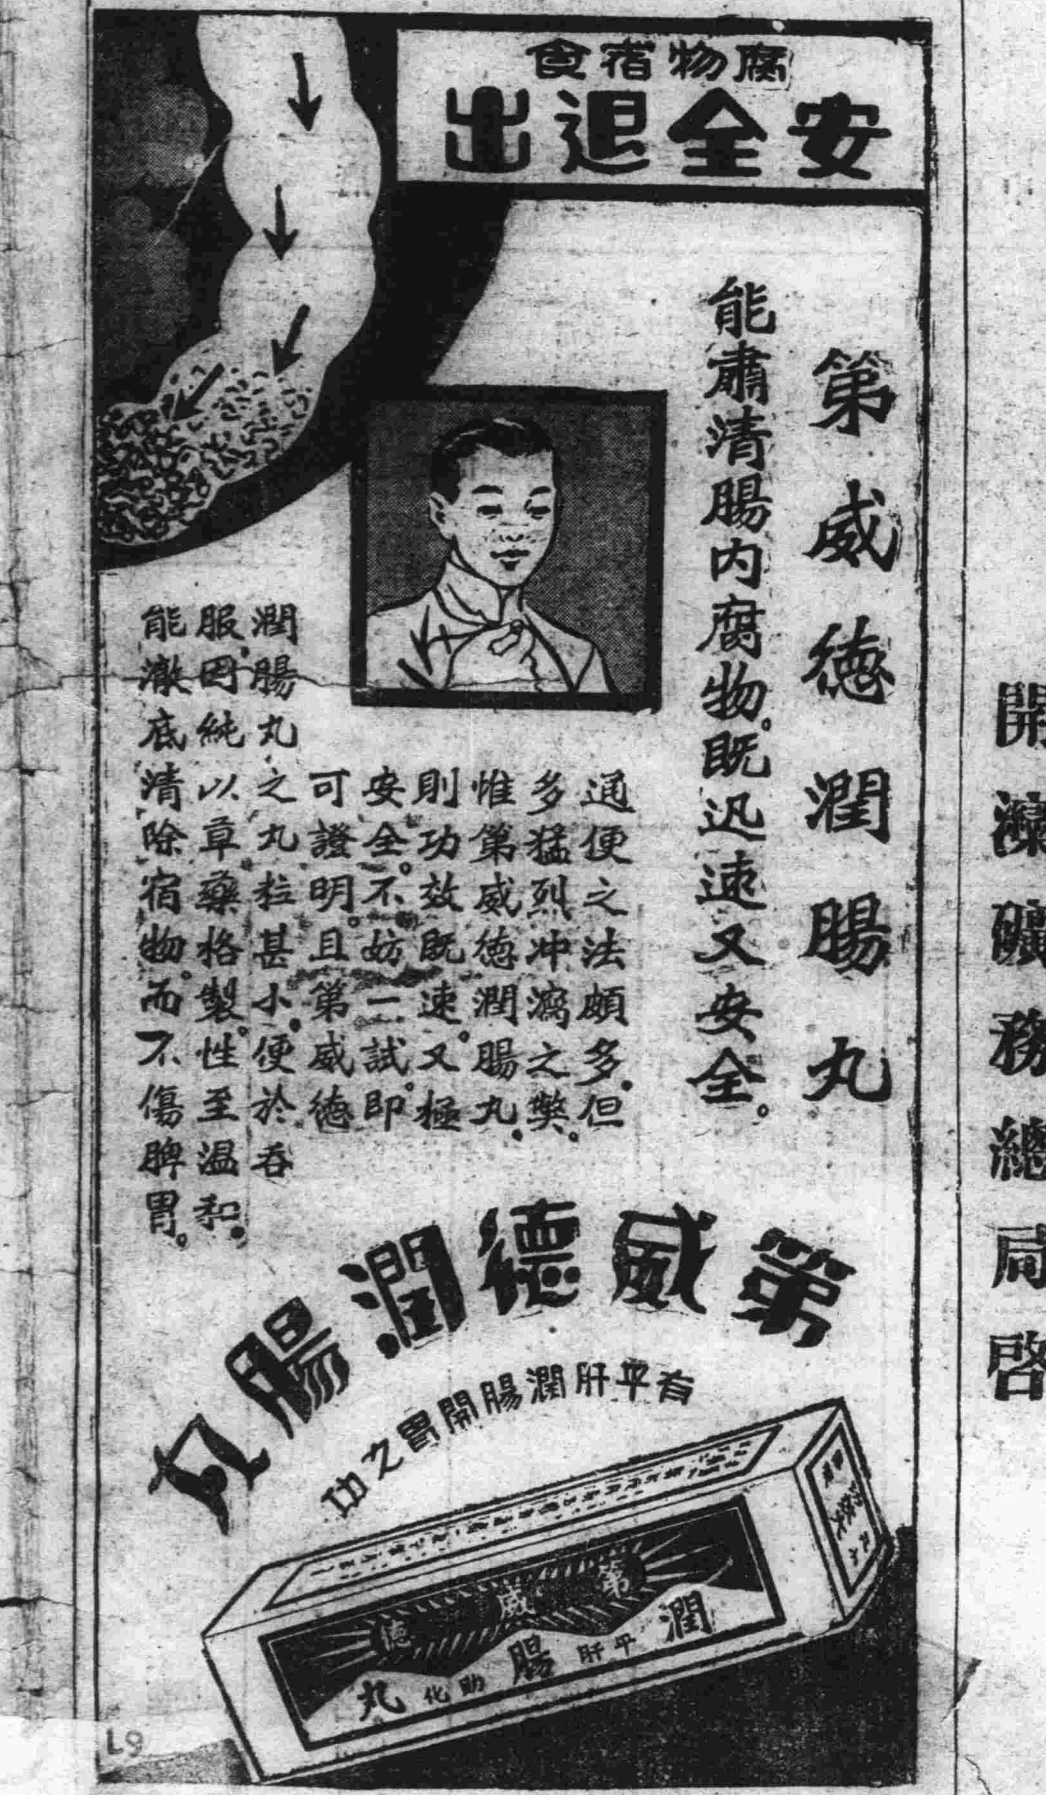 腐物宿食
安全退出
第威德潤腸丸
能肅清腸內腐物。既迅速又安全。
通便之法頗多。但
多猛烈冲瀉之獘。
惟第威德潤腸丸。
則功效既速。又極
安全。不妨一試。即
可證明。且第威德
潤腸丸。之丸粒甚小。便於吞
服。因純以草藥格製。性至温和。
能澈底清除宿物。而不傷脾胃。
第威德潤腸丸
有平肝潤腸開胃之功
第威德
潤腸丸
平肝
助化
L9
開灤礦務總局啓